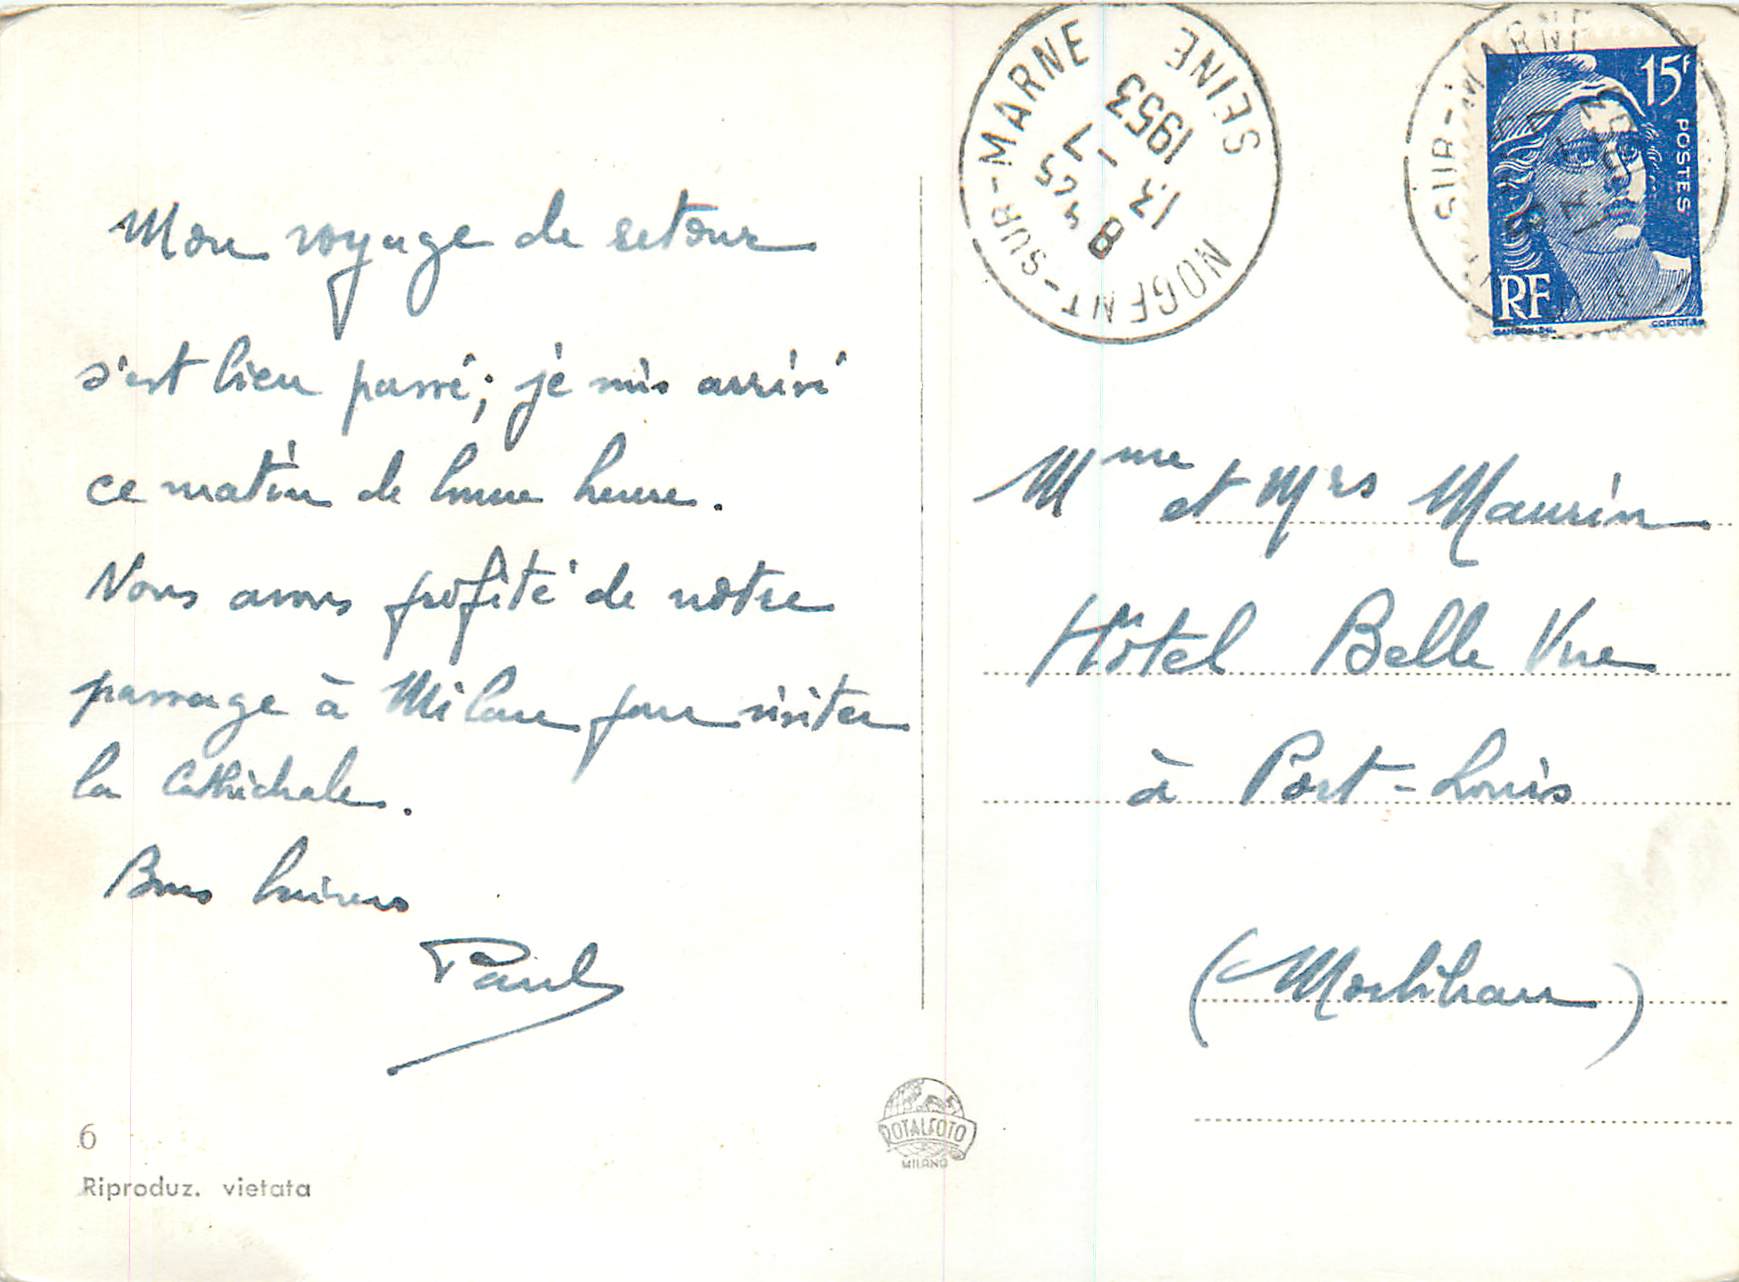 Mon voyage de retour
s'est bien passé; je suis arrivé
ce matin de bonne heure.
Nous avons profité de notre
passage à Milan pour visiter
la Cathédrale.
Bons baisers
Paul
6
Riproduz. vietata
ROTALFOTO
MILANO
NOGENT-SUR-MARNE
SEINE
8 45
13 - 7
1953
SUR-MARNE
15F
POSTES
RF
GANDON DEL.
CORTOT SC.
Mme et Mrs Maurin
Hôtel Belle Vue
à Port-Louis
(Morbihan)